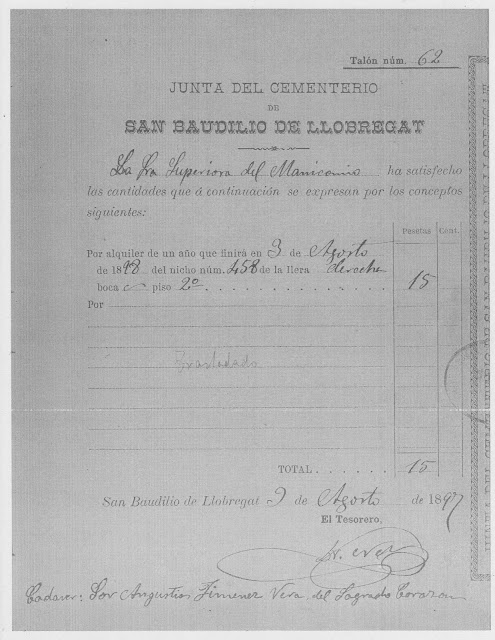 Talón núm. 62
JUNTA DEL CEMENTERIO
DE
SAN BAUDILIO DE LLOBREGAT
La Sra Superiora del Manicomio ha satisfecho
las cantidades que á continuación se expresan por los conceptos
siguientes:
Pesetas Cent.
Por alquiler de un año que finirá en 3 de Agosto
de 1898 del nicho núm. 458 de la llera derecha
boca piso 2º 15
Por
Trasladado
TOTAL 15
San Baudilio de Llobregat 9 de Agosto de 1897
El Tesorero,
Cadaver: Sor Angustias Jimenez Vera del Sagrado Corazon